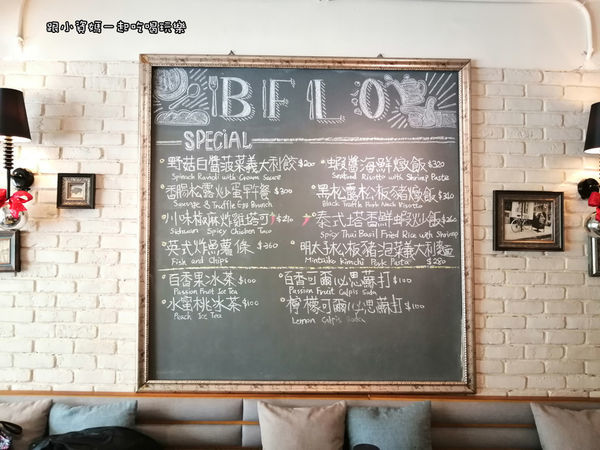 跟小資媽一起吃喝玩樂
BFLO
SPECIAL
野菇白醬菠菜義大利餃 $300
Spinach Ravioli with Cream Sauce
香腸松露炒蛋早午餐 $300
Sausage & Truffle Egg Brunch
小味椒麻炸雞塔可 $240
Sichuan Spicy Chicken Taco
英式炸魚薯條 $360
Fish and Chips
百香果冰茶 $100
Passion Fruit Ice Tea
水蜜桃冰茶 $100
Peach Ice Tea
蝦醬海鮮燉飯 $320
Seafood Risotto with Shrimp Paste
黑松露松板豬燉飯 $340
Black Truffle Pork Neck Risotto
泰式打塔香鮮蝦炒飯
Spicy Thai Basil Fried Rice with Shrimp
明太子松板豬泡菜義大利麵
Mintaiko Kimchi Pork Pasta $280
百香可爾必思蘇打 $100
Passion Fruit Calpis Soda
檸檬可爾必思蘇打 $100
Lemon Calpis Soda